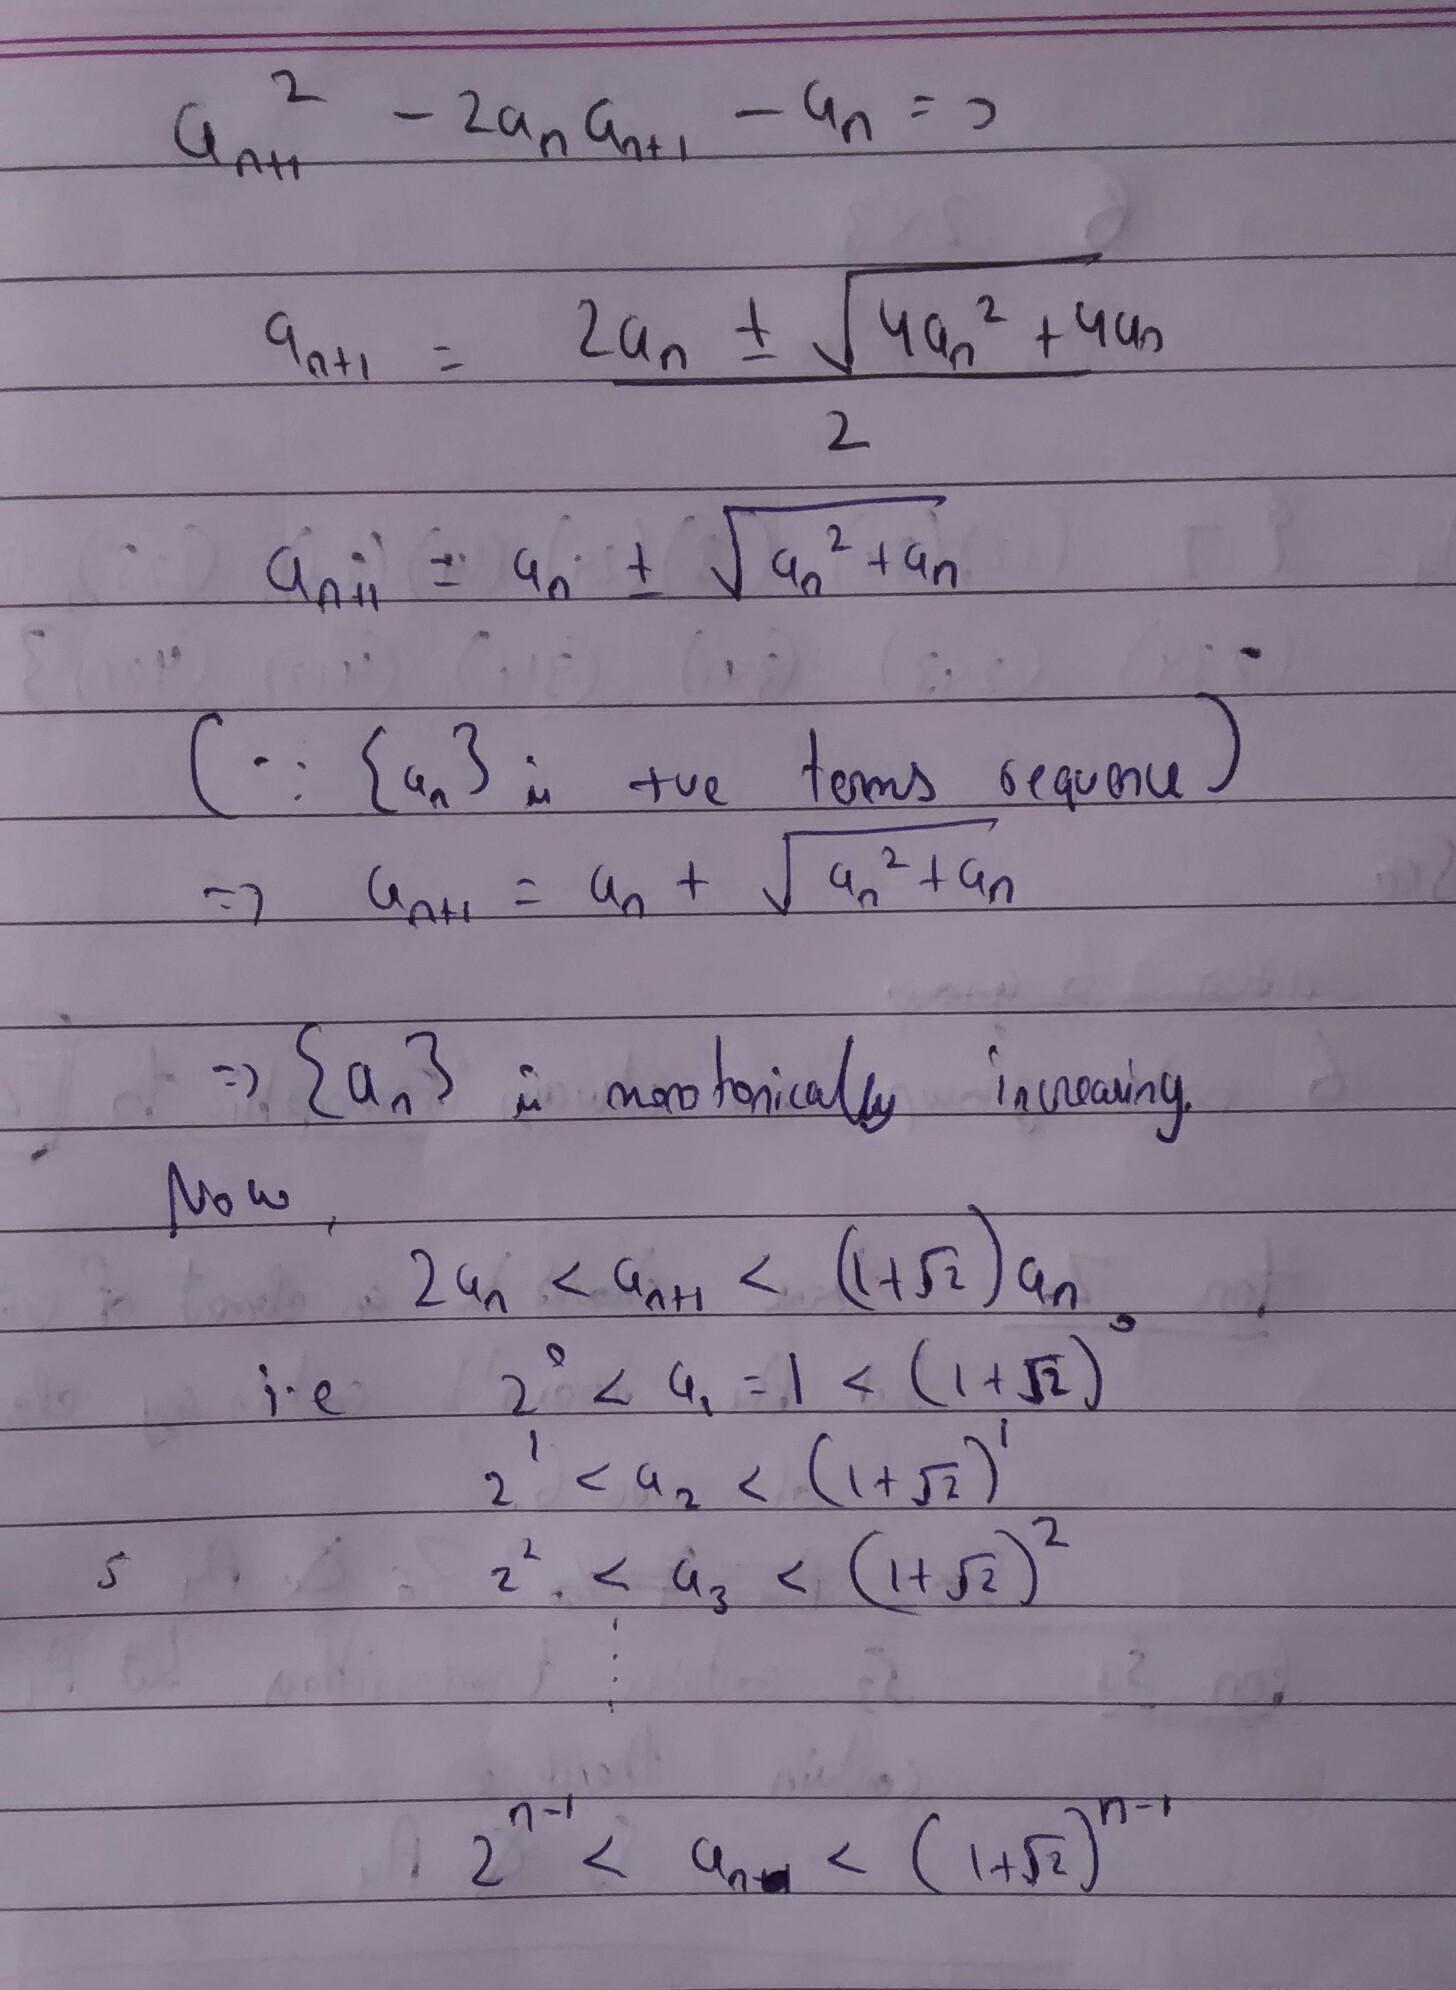 a_{n+1}^2 - 2a_n a_{n+1} - a_n = 0
a_{n+1} = \frac{2a_n ± \sqrt{4a_n^2 + 4a_n}}{2}
a_{n+1} = a_n ± \sqrt{a_n^2 + a_n}
(∵ {a_n} is +ve terms sequence)
=> a_{n+1} = a_n + \sqrt{a_n^2 + a_n}
=> {a_n} is monotonically increasing.
Now,
2a_n < a_{n+1} < (1+√2) a_n
i.e 2^0 < a_1 = 1 < (1+√2)^0
2^1 < a_2 < (1+√2)^1
2^2 < a_3 < (1+√2)^2
⋮
2^{n-1} < a_n < (1+√2)^{n-1}